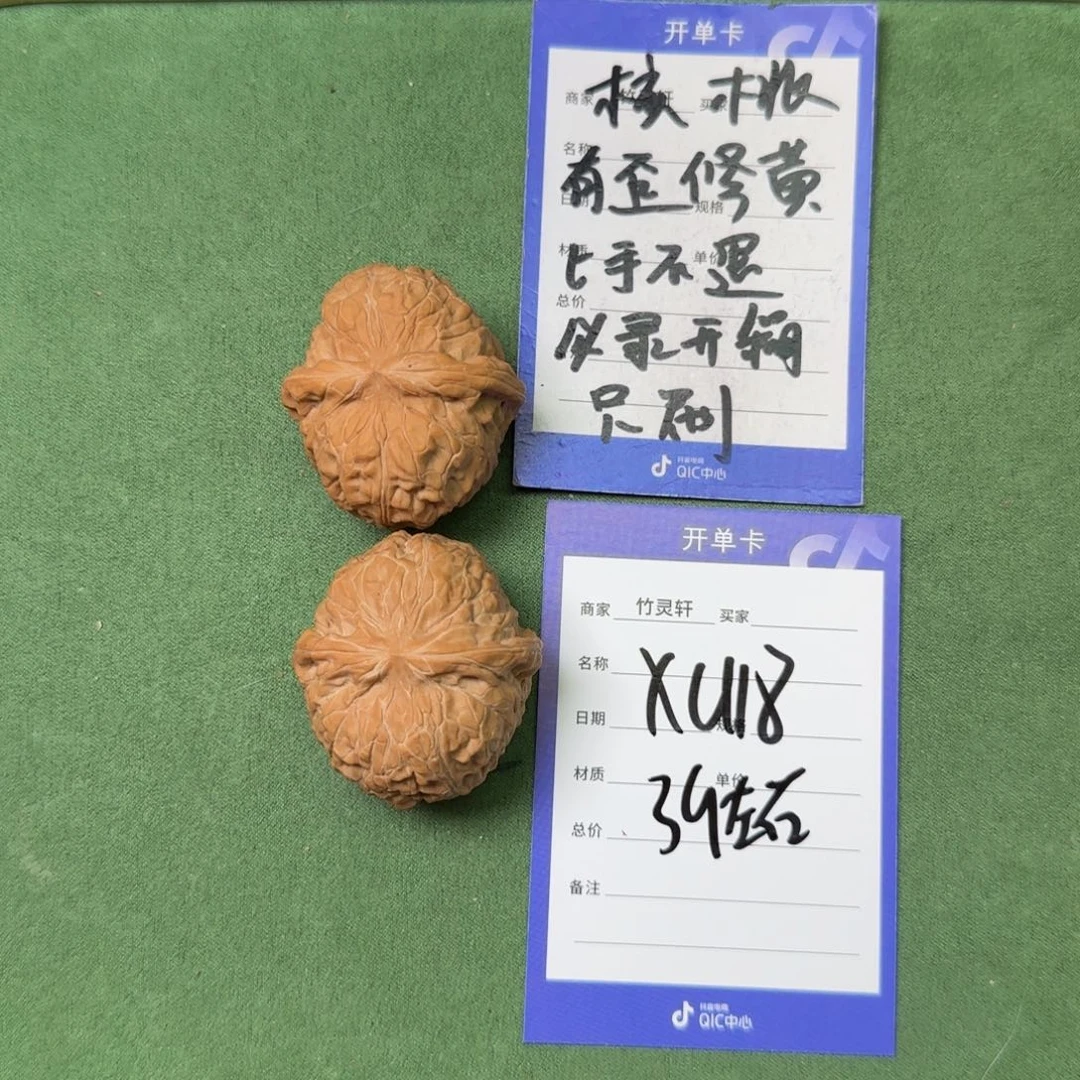 开单卡
商家 竹灵轩 买家
核 木根
名称
有歪修黄
日期 规格
上手不退
材质 单价
总价
必录开箱
只刷
抖音电商
QIC中心
开单卡
商家 竹灵轩 买家
名称
XU118
日期
材质 单价
39左右
总价
备注
抖音电商
QIC中心